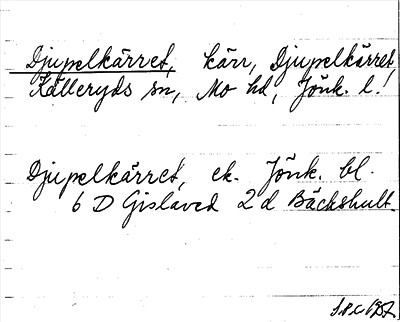 Djupelkärret, kärr, Djupelkärret,
Källeryds sn, Mo hd, Jönk. l.!
Djupelkärret, ek. Jönk. bl.
6 D Gislaved 2 d Bäckshult.